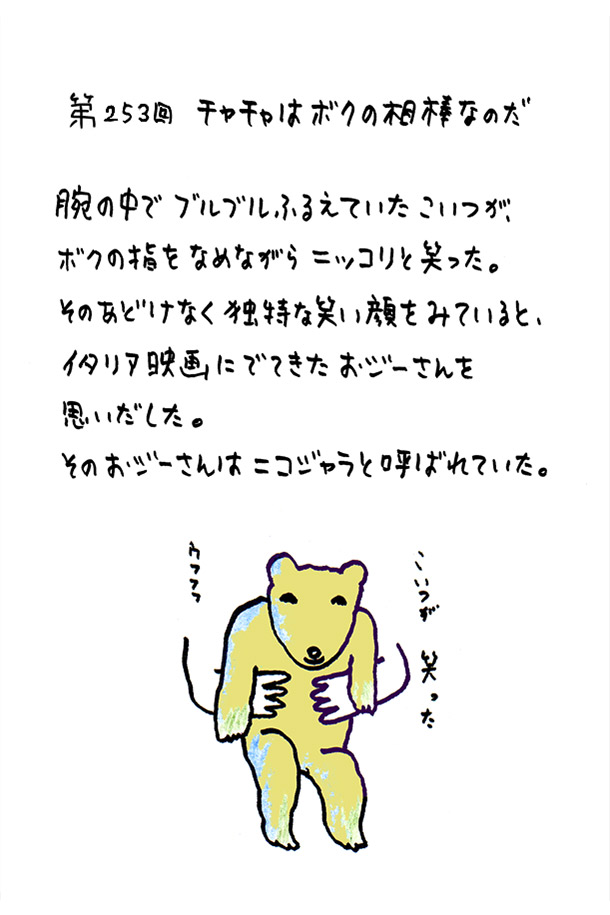 第253回 チャチャはボクの相棒なのだ
腕の中でブルブルふるえていたこいつが、
ボクの指をなめながらニッコリと笑った。
そのあどけなく独特な笑い顔をみていると、
イタリア映画にでてきたおジーさんを
思いだした。
そのおジーさんはニコジャラと呼ばれていた。
ウフフフ
こいつが
笑った